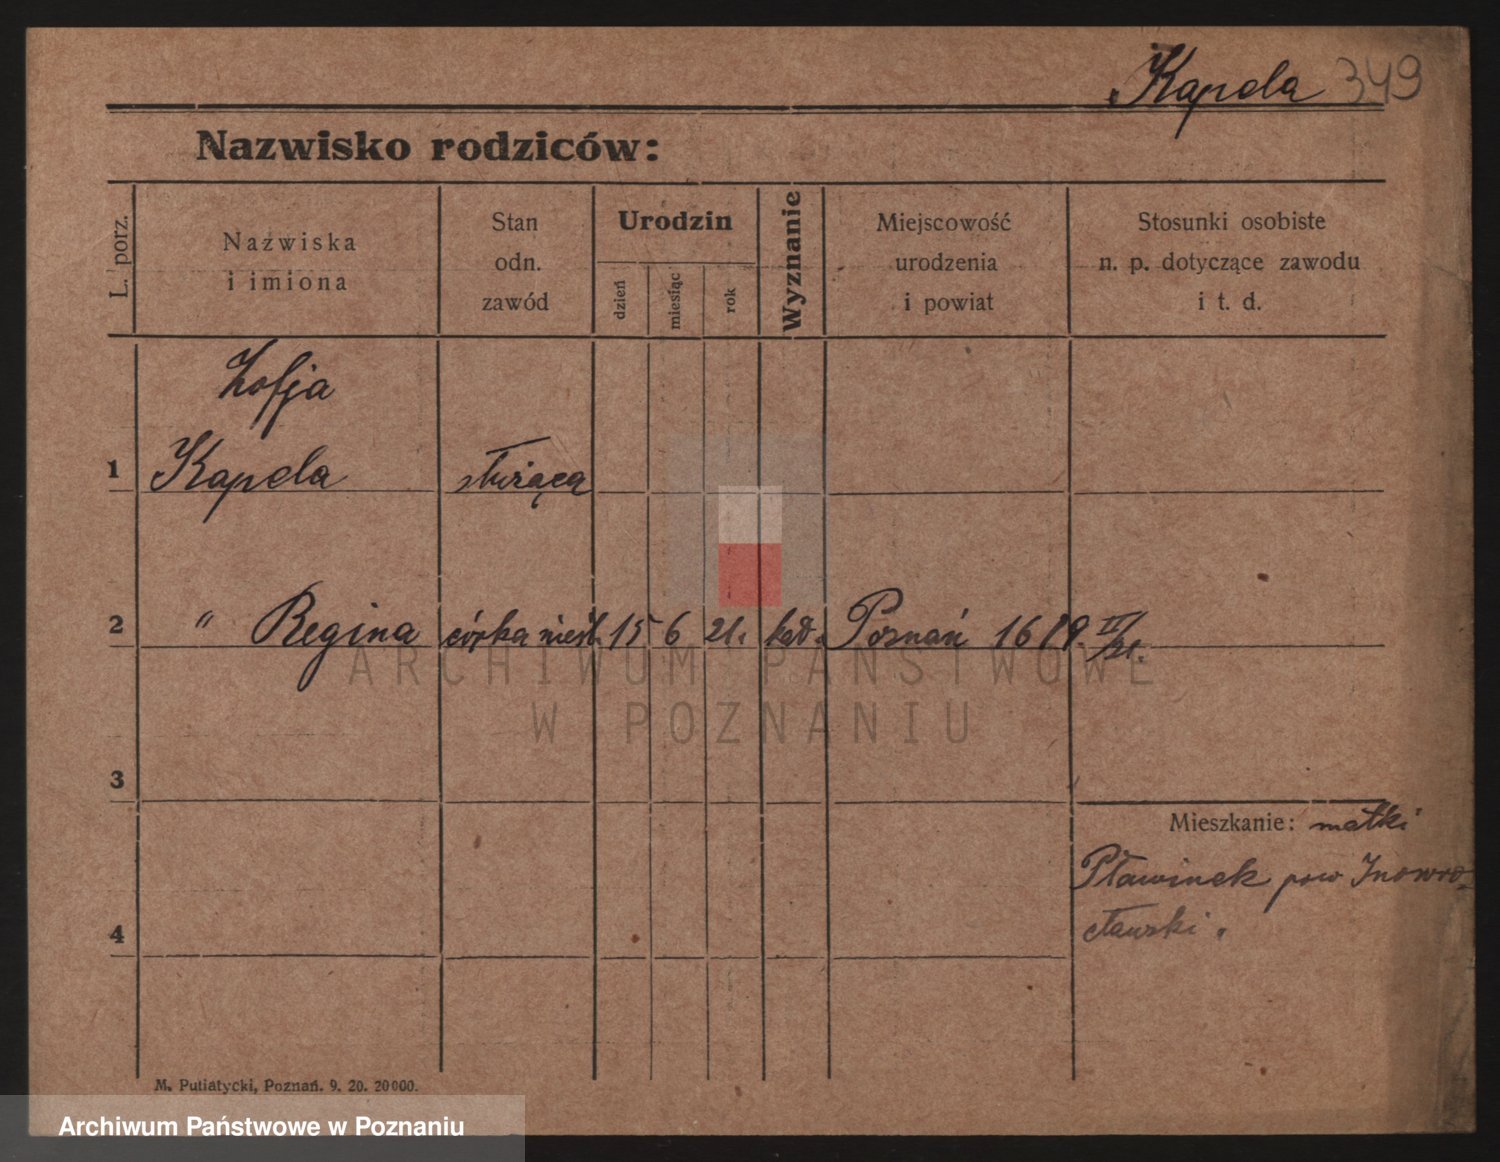 Kapela 349
Nazwisko rodziców:
L. porz.
Nazwiska
i imiona
Stan
odn.
zawód
Urodzin
dzień
miesiąc
rok
Wyznanie
Miejscowość
urodzenia
i powiat
Stosunki osobiste
n. p. dotyczące zawodu
i t. d.
Zofja
1 Kapela służąca
2 " Regina córka nieśl. 15 6 21. kat. Poznań 1619. IV/21.
ARCHIWUM PAŃSTWOWE
W POZNANIU
3
Mieszkanie: matki
Pławinek pow Inowro-
cławski.
4
M. Putiatycki, Poznań. 9. 20. 20000.
Archiwum Państwowe w Poznaniu